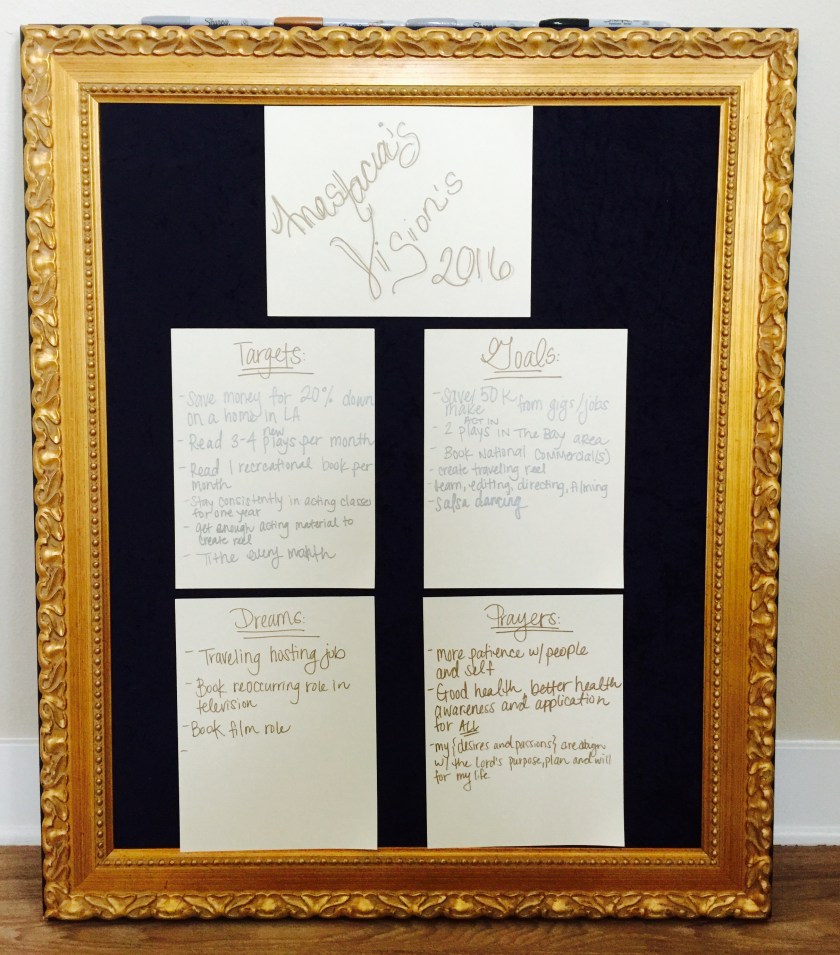 Sharpie
Anastacia's
Vision's
2016
Targets:
- Save money for 20% down
on a home in LA
- Read 3-4 new plays per month
- Read 1 recreational book per
month
- Stay consistently in acting classes
for one year
- get enough acting material to
create reel
- Tithe every month
Goals:
- Save/ 50K from gigs/jobs
make
- 2 ACT IN plays in The Bay area
- Book National Commercial(s)
- create traveling reel
- learn, editing, directing, filming
- Salsa dancing
Dreams:
- Traveling hosting job
- Book reoccurring role in
television
- Book film role
-
Prayers:
- more patience w/ people
and self
- Good health, better health
awareness and application
for ALL
- my {desires and passions} are align
w/ the Lord's purpose, plan and will
for my life.